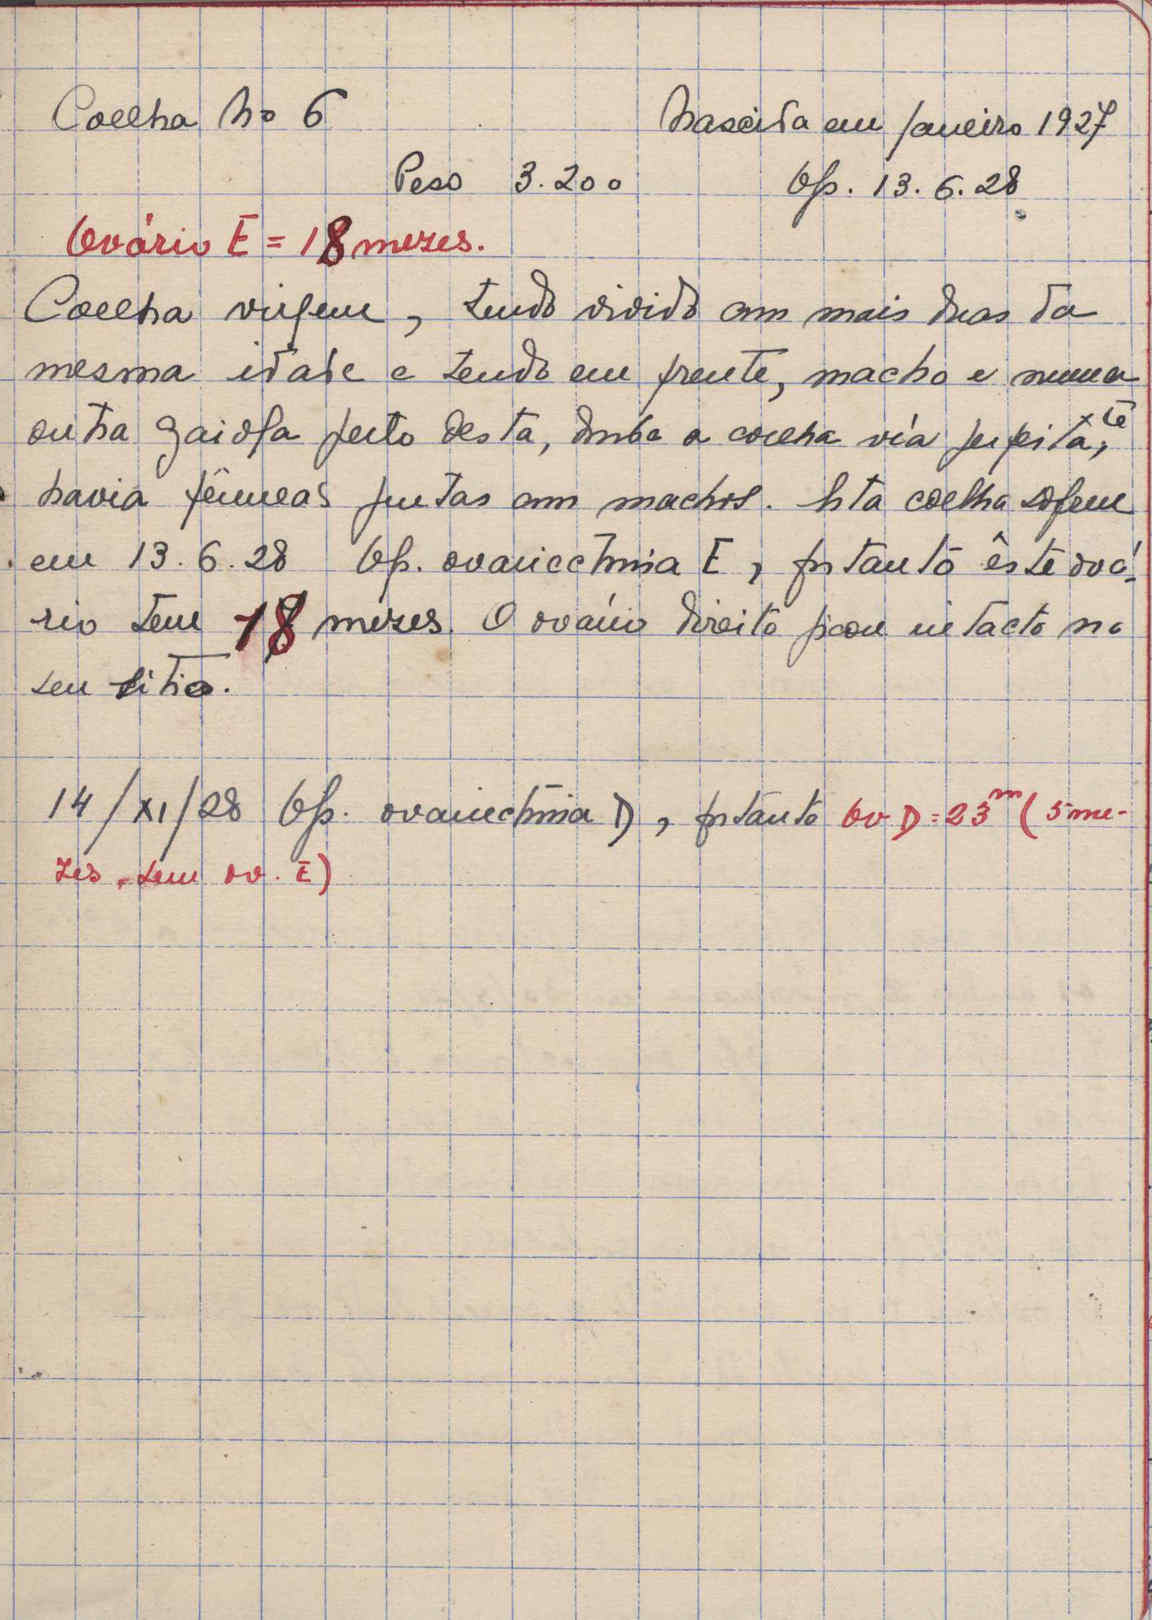 Coelha No 6 Nascida em Janeiro 1927
Peso 3.200 Op. 13.6.28
Ovário E = 18 mezes.
Coelha virgem, tendo vivido com mais duas da
mesma idade e tendo em frente, macho e numa
outra gaiola perto desta, donde a coelha via perfeitamte,
havia fêmeas juntas com machos. Esta coelha sofreu
em 13.6.28 Op. ovariectomia E, portanto êste ová-
rio tem 18 mezes. O ovário direito ficou intacto no
seu sitio.
14/XI/28 Op. ovariectomia D, portanto Ov D = 23m (5 me-
zes sem ov. E)